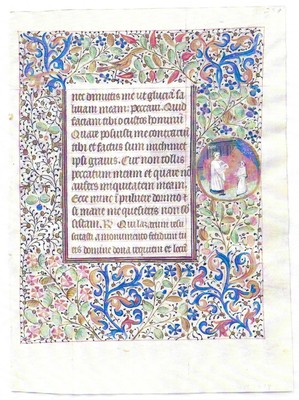 nec dimittis me ut gluciam sa
liuam meam. Peccaui. Quid
faciam tibi o custos hominū
Quare posuisti me contrariū
tibi et factus sum michimet
ipsi grauis. Cur non tollis
peccatum meum et quare nō
aufers iniquitatem meam.
Ecce nunc ī puluere dormio &
si mane me quesieris non sub
sistam. R. Qui lazarum resu
scitasti a monumento fetidum tu
eis domine dona requiem et locū